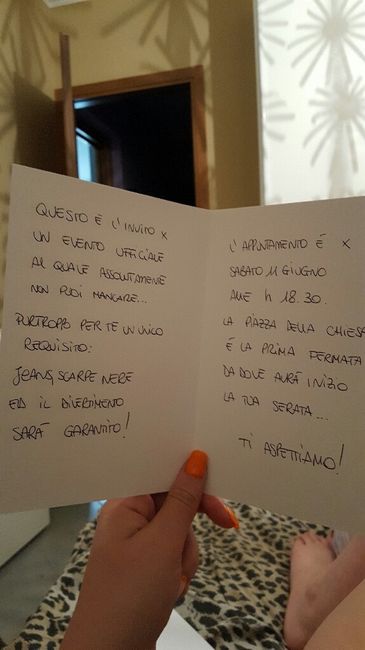 QUESTO È L'INVITO X
UN EVENTO UFFICIALE
AL QUALE ASSOLUTAMENTE
NON PUOI MANCARE...
PURTROPPO PER TE UN UNICO
REQUISITO:
JEANS, SCARPE NERE
ED IL DIVERTIMENTO
SARÀ GARANTITO!
L'APPUNTAMENTO È X
SABATO 11 GIUGNO
ALLE h 18.30.
LA PIAZZA DELLA CHIESA
È LA PRIMA FERMATA
DA DOVE AVRÀ INIZIO
LA TUA SERATA...
TI ASPETTIAMO!